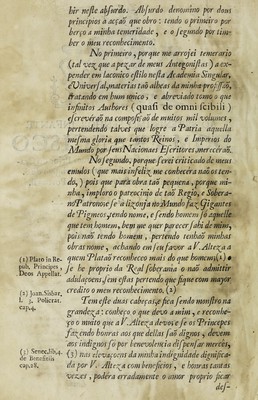 bir neste absurdo. Absurdo denomino por dous
principios a acção que obro: tendo o primeiro por
berço a minha temeridade, e o segundo por tim-
bre o meu reconhecimento.
No primeiro, porque me arrojei temerario
(tal vez que a pezar dos meus Antegonistas) a ex-
pender em laconico estilo nesta Academia Singular,
e Universal, materias taõ alheas da minha profissaõ,
tratando em hum unico, e abreviado tomo o que
infinitos Authores (quasi de omni scibili)
escreveraõ na composiçaõ de muitos mil volumes,
pertendendo talvez que logre a Patria aquella
mesma gloria que tantos Reinos, e Imperios do
Mundo por seus Nacionaes Escritores mereceraõ.
No segundo, porque serei criticado de meus
emulos (que mais infeliz me conhecera naõ os ten-
do,) pois que para obra taõ pequena, porque mi-
nha, imploro o patrocinio de taõ Regio, e Sobera-
no Patrono: se a lizonja no Mundo faz Gigantes
de Pigmeos, tendo nome, e sendo homem só aquelle
que tem homem, bem me quer parecer sahi de mim,
pois naõ tendo homem, pertendo tenhaõ minhas
obras nome, achando em seu favor a V. Alteza a
quem Plataõ reconhece mais do que homem(1)
se he proprio da Real soberania o naõ admittir
adulaçoens, sem estas pertendo que fique com mayor
credito o meu reconhecimento. (2)
Tem este duas cabeças, e fica sendo monstro na
grandeza: conheço o que devo a mim, e reconhe-
ço o muito que a V. Alteza devo, e se os Principes
fazendo honras aos que dellas saõ dignos, devem-
aos indignos só por benevolencia dispensar mercès,
(3) nas elevaçoens da minha indignidade dignifica-
da por V. Alteza com beneficios, e honras tantas
vezes, podéra erradamente o amor proprio ficar
des-
(1) Plato in Re-
pub. Principes,
Deos Appellat.
(2) Joan. Sisbar,
l. 3. Policrat.
cap.4.
(3) Senec. lib.4.
de Beneficiis
cap.28.